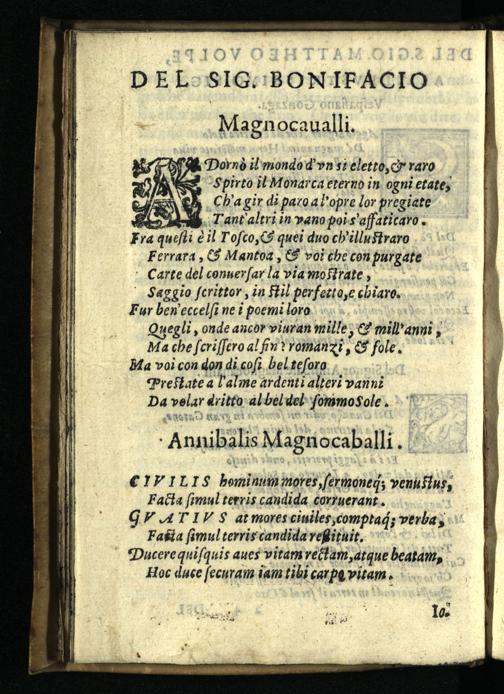 DEL SIG. BONIFACIO
Magnocaualli.
ADornò il mondo d'vn si eletto, & raro
Spirto il Monarca eterno in ogni etate,
Ch'a gir di paro a l'opre lor pregiate
Tant'altri in vano poi s'affaticaro.
Fra questi è il Tosco, & quei duo ch'illustraro
Ferrara, & Mantoa, & voi che con purgate
Carte del conuersar la via mostrate,
Saggio scrittor, in stil perfetto, e chiaro.
Fur ben'eccelsi ne i poemi loro
Quegli, onde ancor viuran mille, & mill'anni,
Ma che scrissero al fin? romanzi, & fole.
Ma voi con don di cosi bel tesoro
Prestate a l'alme ardenti alteri vanni
Da volar dritto al bel del sommo Sole.
Annibalis Magnocaballi.
CIVILIS hominum mores, sermoneq; venustus,
Facta simul terris candida corruerant.
GVATIVS at mores ciuiles, comptaq; verba,
Facta simul terris candida restituit.
Ducere quisquis aues vitam rectam, atque beatam,
Hoc duce securam iam tibi carpe vitam.
Io.